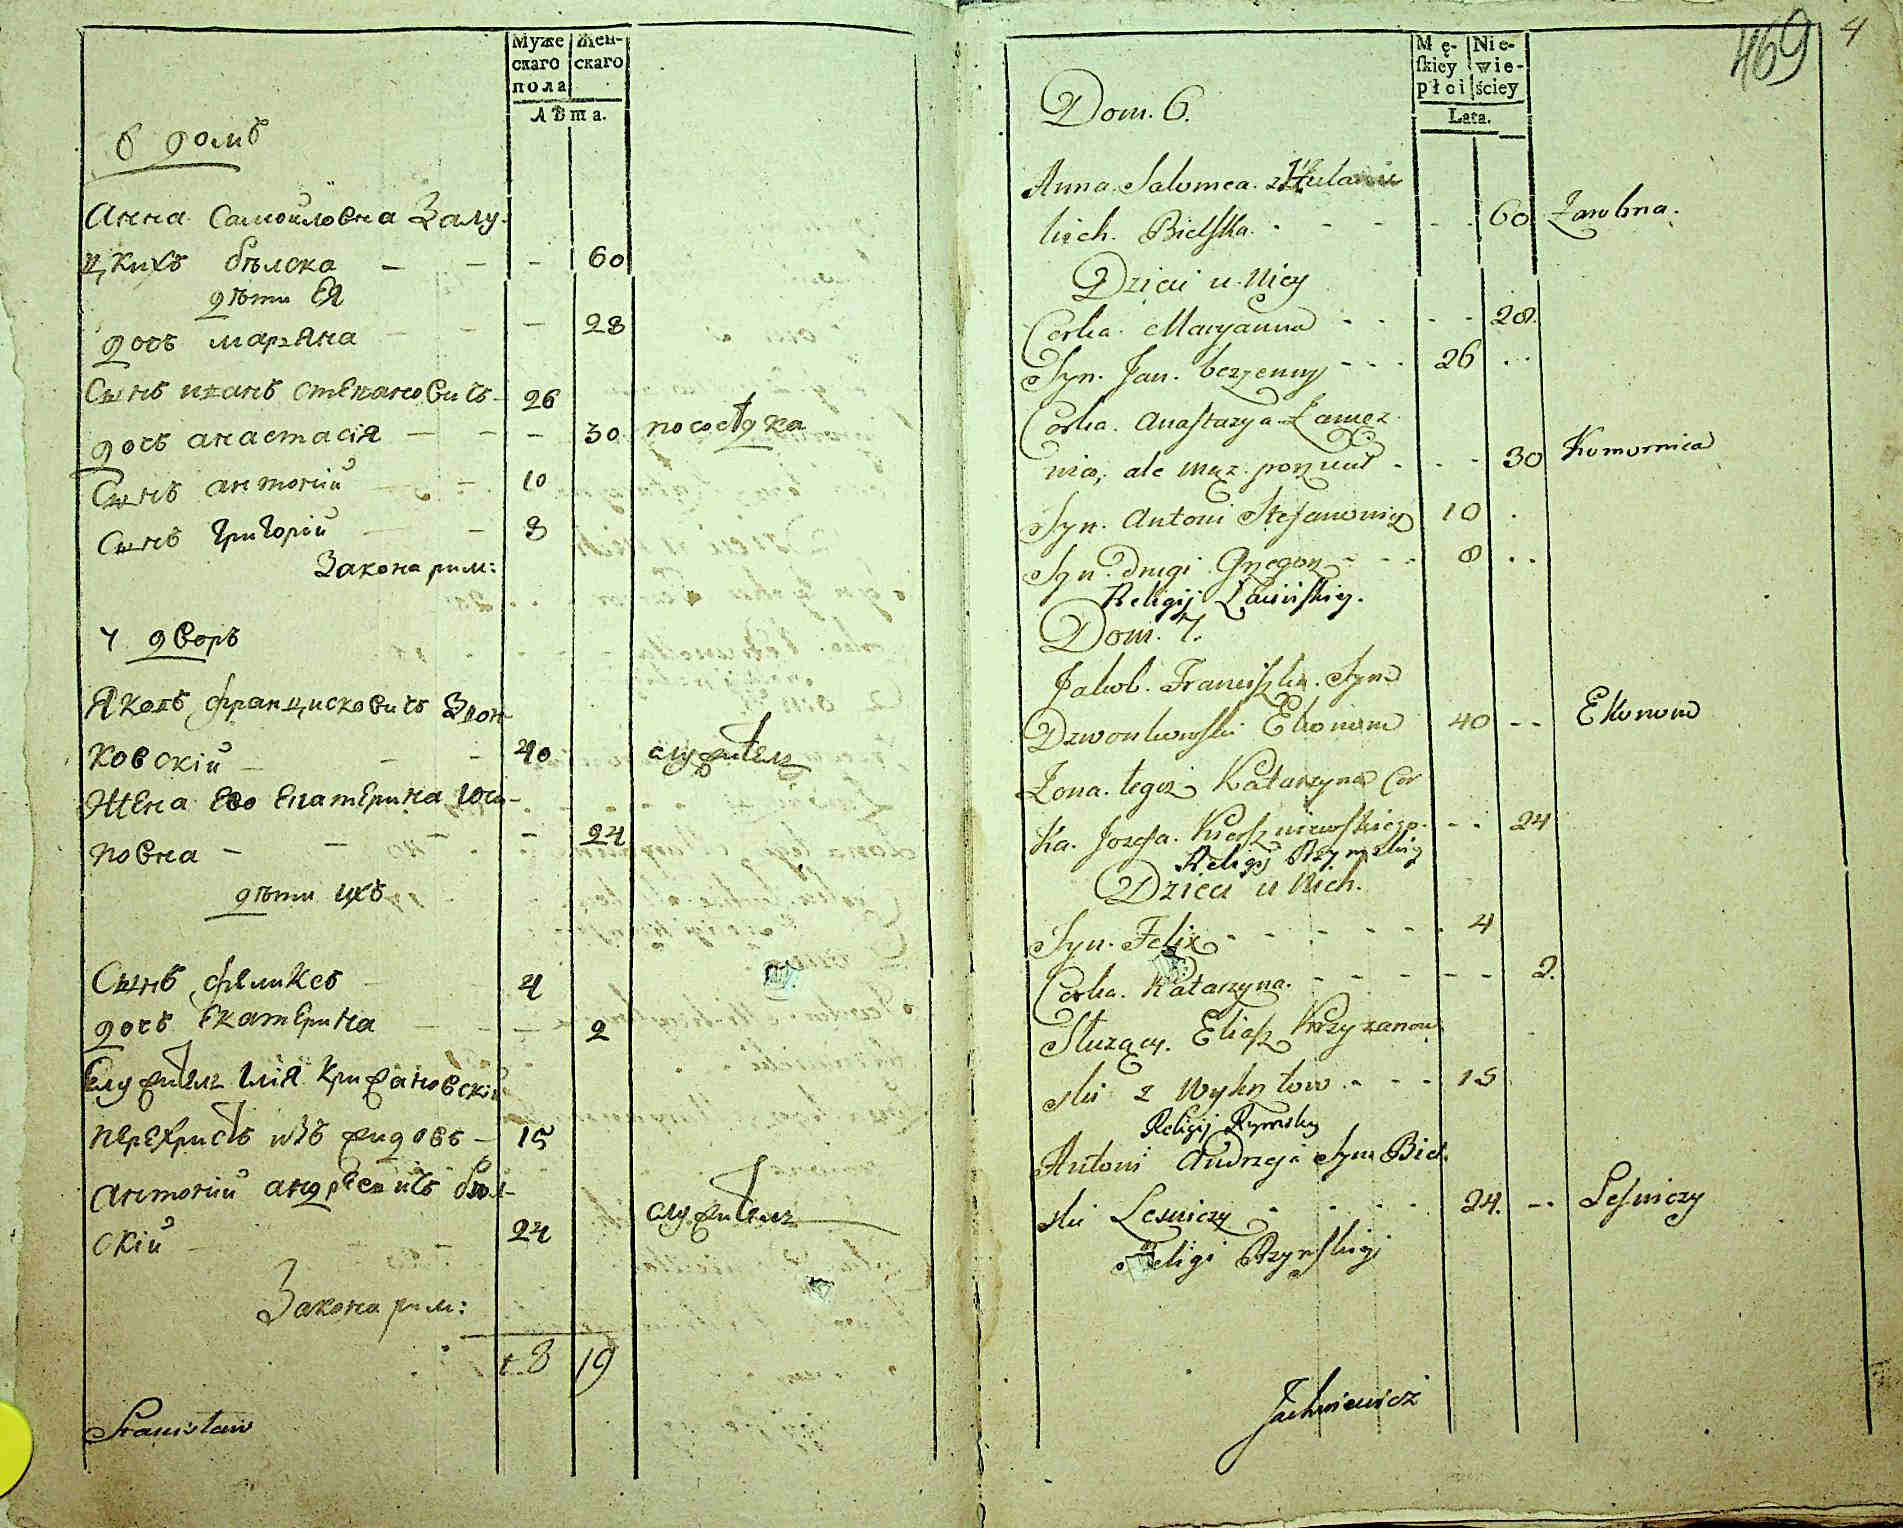 Муже
скаго
пола
Жен-
скаго
Лѣта.
6 домъ
Анна Самойловна Залу-
цкихъ бѣлска — — — 60
дѣти Ея
дочь марьяна — — — 28
Сынъ иванъ степановичъ — 26
дочь анастасія — — — 30 посѣтка
Сынъ антоній — 10
Сынъ Григорій — 8
Закона рим:
7 дворъ
Яковъ францисковичъ Звон-
ковскій — — — 40 служитель
Жена Его Екатерина Юси-
повна — — — 24
дѣти ихъ
Сынъ феликсъ — 4
дочь Екатерина — — — 2
Служитель Илія Крижановскій
перехристъ изъ жидовъ — 15
антоній андреевичъ бѣл-
скій — 24 служитель
Закона рим:
t. 8 19
Stanisław
469
4
Mę-
skiey
płci
Nie-
wie-
ściey
Lata.
Dom. 6.
Anna Salomea
lich. Bielska. - - - - - 60
Dzieci u Niey
Corka. Maryanna - - - - 28.
Syn. Jan. bezzenny - - - 26 . .
Corka. Anastazya Zamęz
nia, ale mąz porzucił - - - 30 Komornica
Syn. Antoni Stefanowicz 10 .
Syn. drugi Grzegorz - - - 8 . .
Religij Łacińskiey.
Dom. 7.
Jakob. Franciszka. Syn
Dzwonkowski Ekonom 40 - - Ekonom
Zona. tegoz Katarzyna Cor
ka. Jozefa. - - 24
Religij Rzymskiey
Dzieci u Nich.
Syn. Felix - - - - - - - 4
Corka. Katarzyna. - - - - - - 2.
Słuzący. Eliasz Krzyzanow
ski z Wykrztow - - - 15
Religij Rzymskiey
Antoni Andrzeja Syn Biel
ski Lesniczy - - - - 24. - - Leśniczy
Religi Rzymskiey
Jachniewicz